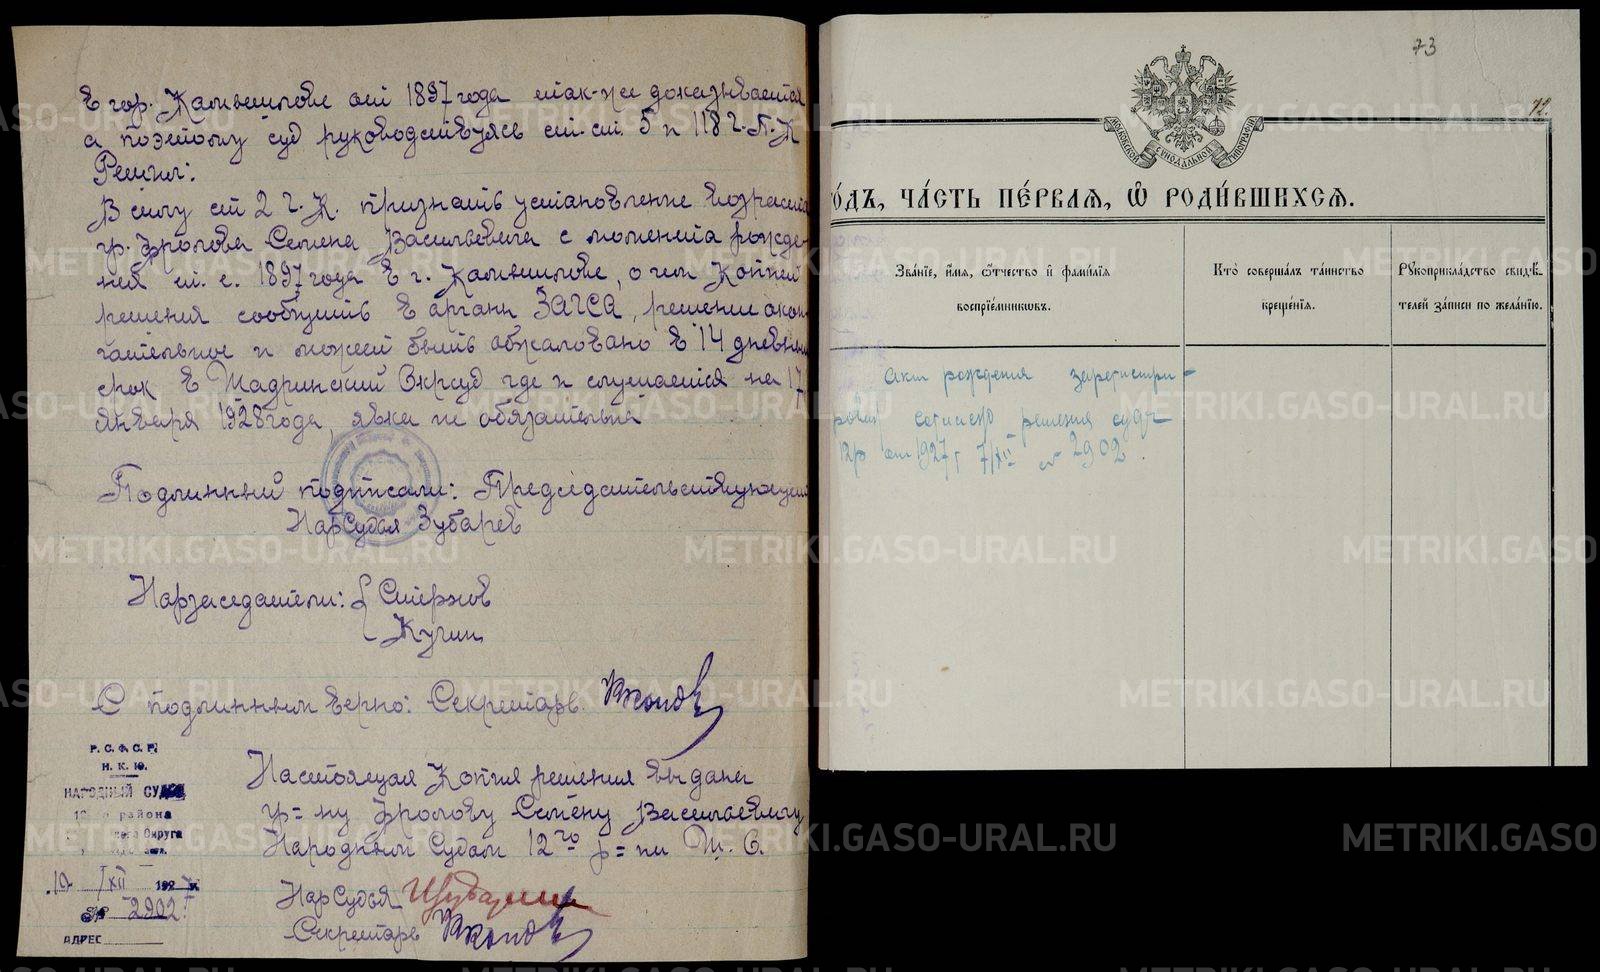 в гор. Камышлове от 1897 года так-же доказывается
а поэтому суд руководствуясь ст. ст. 5 и 118 Г.П.К
Решил:
В силу ст 2 Г.К. признать установление возраста
гр. Фролова Семена Васильевича с момента рожде-
ния т. е. 1897 года в г. Камышлове, о чем копией
решения сообщить в органы ЗАГСА, решение окон-
чательное и может быть обжаловано в 14 дневный
срок в Шадринский Окрсуд где и слушается на 17
января 1928 года, явка не обязательна
Подлинный подписали: Председательствующий
НарСудья Зубарев
Нарзаседатели: { Стержов
Кучин
С подлинным верно: Секретарь
Р. С. Ф. С. Р.
Н. К. Ю.
НАРОДНЫЙ СУД
района
Округа
19 /XII 1927 г.
№ 2902
АДРЕС
Настоящая копия решения выдана
гр-ну Фролову Семену Васильевичу
Народным Судом 12го р-на Ш. О.
НарСудья
Секретарь
73
72.
МОСКОВСКОЙ СѴНОДАЛЬНОЙ ТИПОГРАФІИ
ГО́ДЪ, ЧА́СТЬ ПЕ́РВАЯ, Ѡ҆ РОДИ́ВШИХСЯ.
Зва́нїе, и҆́мя, ѻ҆́тчество и҆ фами́лїя
воспрїе́мниковъ.
Кто̀ соверша́лъ та́инство
креще́нїя.
Рꙋкоприкла́дство свидѣ́-
телей за́писи по жела́нїю.
Акт рождения зарегистри-
рован согласно решения суда
12р от 1927 г 7/XII № 2902.
METRIKI.GASO-URAL.RU